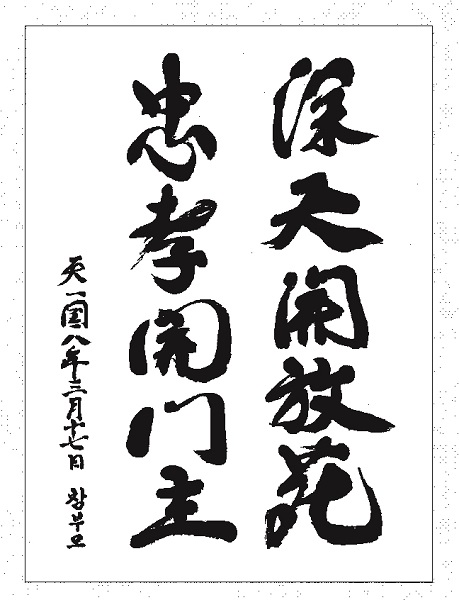 深天開放苑
忠孝開门主
天一国八年三月十七日 참부모